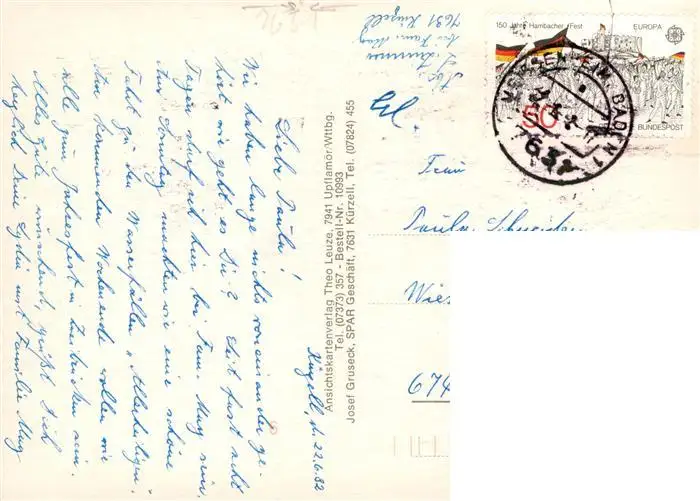 Kürzell, d. 22.6.82
Liebe Paula!
Wir haben lange nichts voneinander ge-
hört wie geht es Dir? Seit fast acht
Tagen darf ich hier bei Fam. Mug sein.
Am Sonntag machten wir eine schöne
Fahrt zu den Wasserfällen „Allerheiligen".
Am kommenden Wochenende wollen wir
alle zum Jahresfest in Zeibrücken sein.
Alles Gute wünschend, grüßt Dich
herzlich Deine Lydia mit Familie Mug
Ansichtskartenverlag Theo Leuze, 7941 Upflamör/Wttbg.
Tel. (07373) 357 - Bestell-Nr. 10993
Josef Gruseck, SPAR Geschäft, 7631 Kürzell, Tel. (07824) 455
bei Fam. Mug
7631 Kürzell
150 Jahre Hambacher Fest EUROPA
CEPT
50
DEUTSCHE BUNDESPOST
MEISSENHEIM, BADEN 1
763
Frau
Paula Schneider
Wies
674